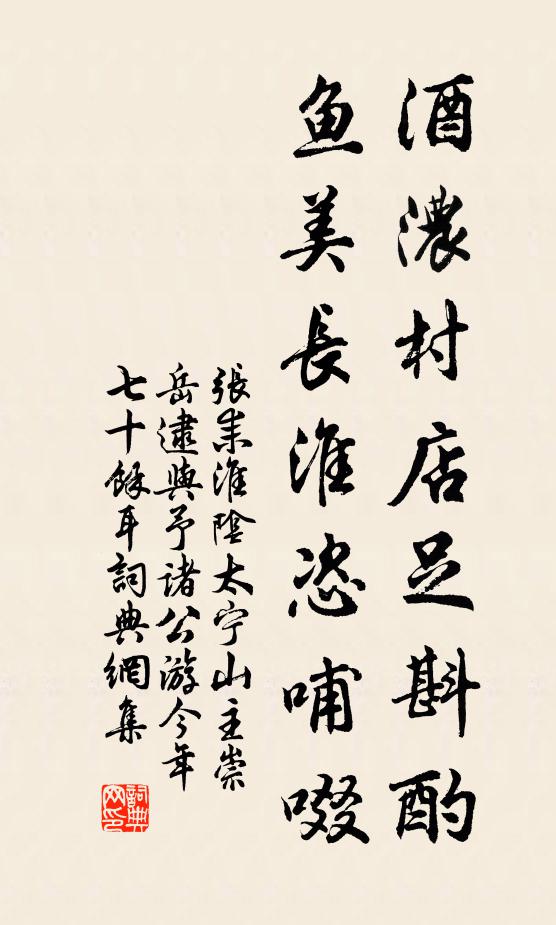 酒濃村店足斟酌
鱼美長淮恣哺啜
張耒淮陰太宁山主崇
岳逮與予诸公游今年
七十餘耳詞典網集
詞典
网印